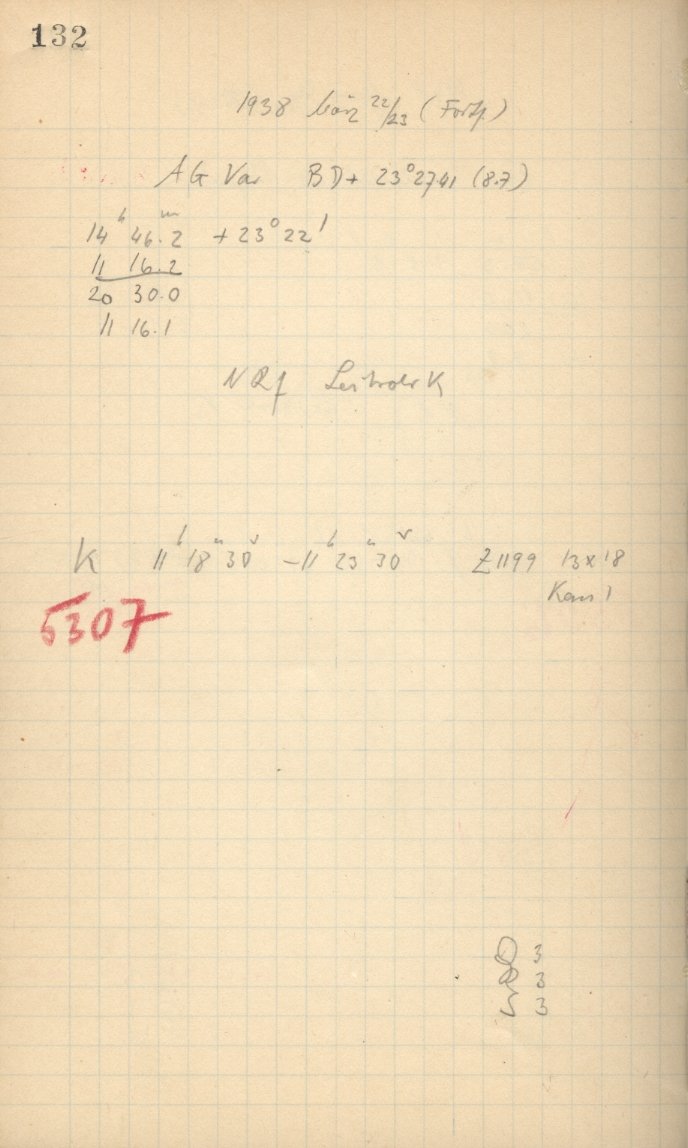 132
1938 März 22/23 (Forts)
AG Var BD+ 23°2741 (8.7)
14ʰ 46.2ᵐ +23°22'
11 16.2
20 30.0
11 16.1
NRf Leitrohr K
K 11ʰ 18ᵐ 30ˢ – 11ʰ 23ᵐ 30ˢ Z1199 13x18
5307
3
3
S 3